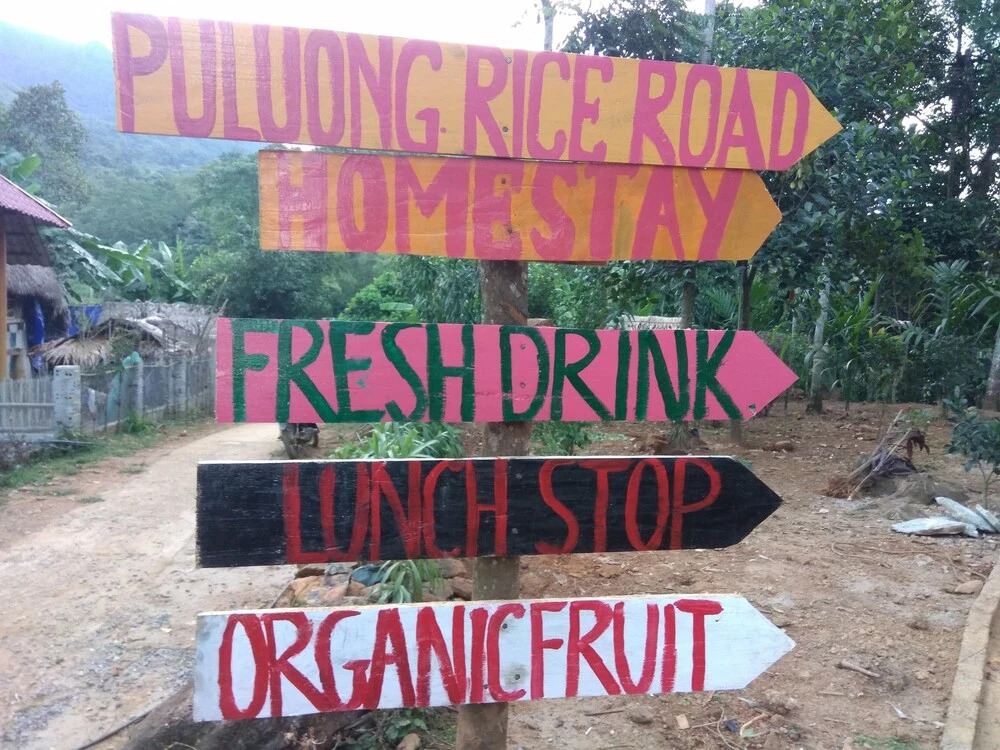 PULUONG RICE ROAD
HOMESTAY
FRESH DRINK
LUNCH STOP
ORGANIC FRUIT